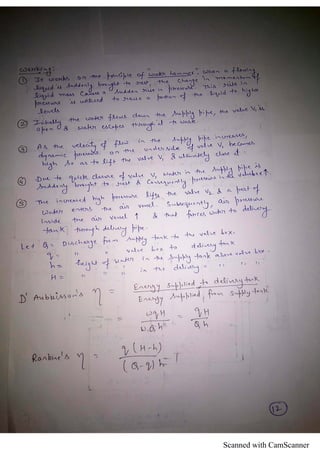 Working:
① It works on the principle of "water hammer". When a flowing
liquid is suddenly brought to rest, the change in momentum of
liquid mass causes a sudden rise in pressure. This rise in
pressure is utilised to raise a portion of the liquid to higher
levels
② Initially the water flows down the supply pipe, the valve V₁ is
open & water escapes through it to waste.
③ As the velocity of flow in the supply pipe increases,
dynamic pressure on the underside of valve V₁ becomes
high so as to lift the valve V₁ & ultimately close it.
④ Due to quick closure of valve V₁ water in the supply pipe is
suddenly brought to rest & consequently pressure inside valve box ↑
⑤ The increased high pressure lifts the valve V₂ & a part of
water enters the air vessel. Subsequently, air pressure
inside the air vessel ↑ & that forces water to delivery
tank through delivery pipe.
Let Q = Discharge from supply tank to the valve box.
q = " " valve box to delivery tank
h = height of water in the supply tank above valve box.
H = " " " in the delivery " " "
D'Aubuisson's η = Energy supplied to delivery tank
Energy supplied from supply tank
= wqH / wQh = qH / Qh
Rankine's η = q(H-h) / (Q-q)h
12
Scanned with CamScanner